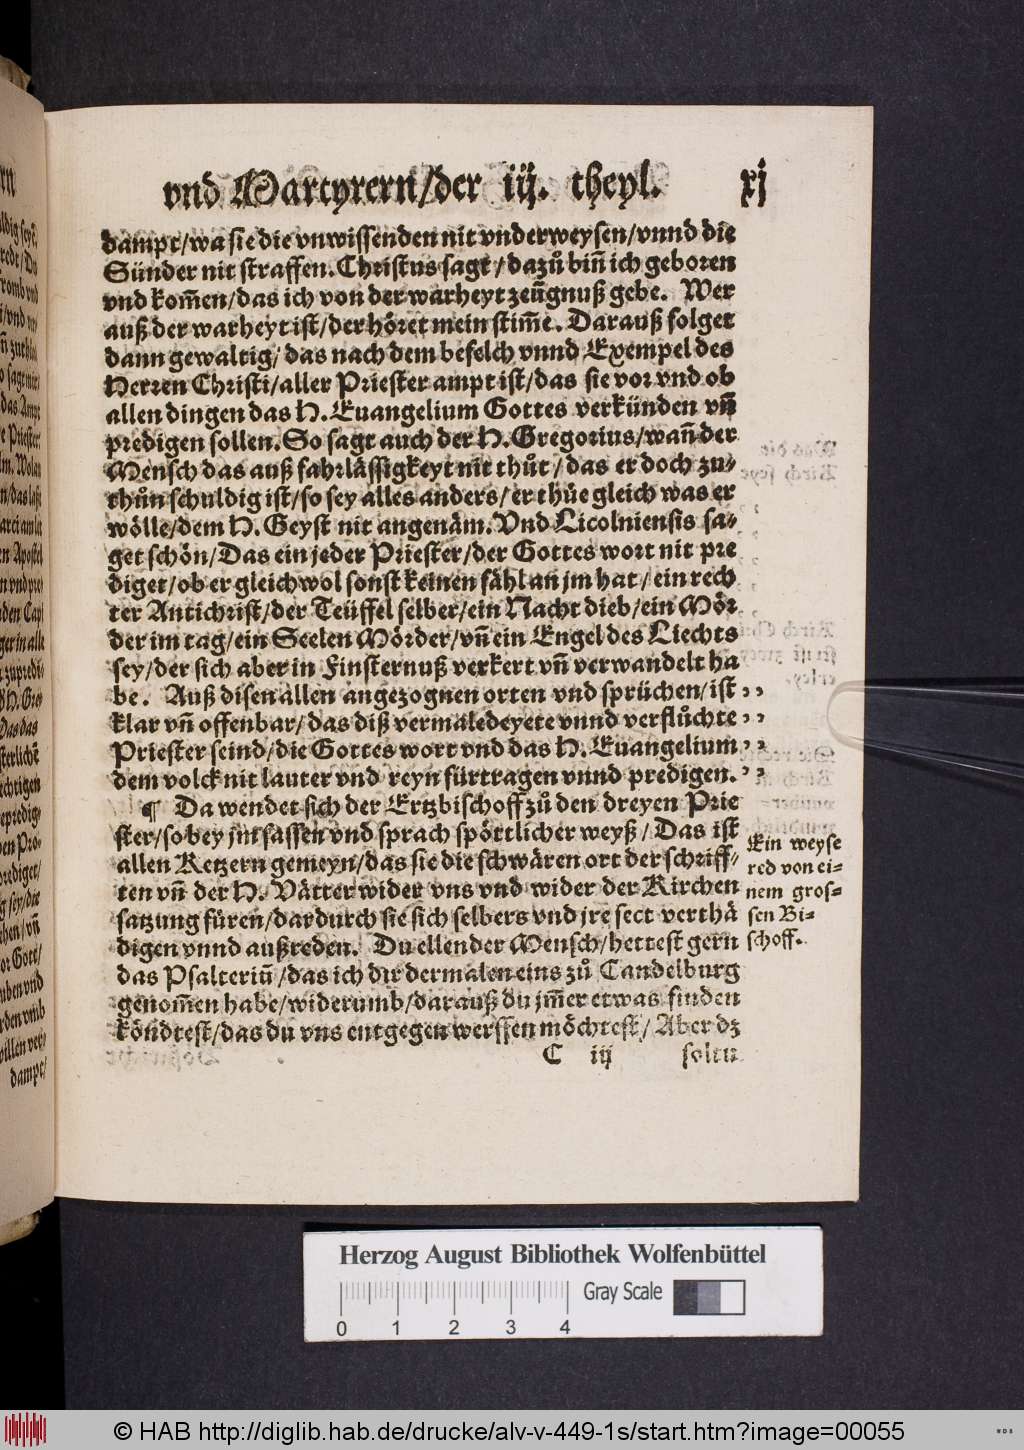 vnd Martyrern/der iij. theyl. xj
dampt/wa sie die vnwissenden nit vnderweysen/vnnd die
Sünder nit straffen. Christus sagt/dazů biñ ich geboren
vnd kom̃en/das ich von der warheyt zeũgnuß gebe. Wer
auß der warheyt ist/der höret mein stim̃e. Darauß folget
dann gewaltig/das nach dem befelch vnnd Exempel des
Herren Christi/aller Priester ampt ist/das sie vor vnd ob
allen dingen das H. Euangelium Gottes verkünden vñ
predigen sollen. So sagt auch der H. Gregorius/wañ der
Mensch das auß fahrlässigkeyt nit thůt/das er doch zu-
thůn schuldig ist/so sey alles anders/er thüe gleich was er
wölle/dem H. Geyst nit angenäm. Vnd Licolniensis sa-
get schön/Das ein jeder Priester/der Gottes wort nit pre
diget/ob er gleich wol sonst keinen fähl an jm hat/ein rech
ter Antichrist/der Teüffel selber/ein Nacht dieb/ein Mör
der im tag/ein Seelen Mörder/vñ ein Engel des Liechts
sey/der sich aber in Finsternuß verkert vñ verwandelt ha
be. Auß disen allen angezognen orten vnd sprüchen/ist
klar vñ offenbar/das diß vermaledeyete vnnd verflůchte
Priester seind/die Gottes wort vnd das H. Euangelium
dem volck nit lauter vnd reyn fürtragen vnnd predigen.
¶ Da wendet sich der Ertzbischoff zů den dreyen Prie
ster/so bey jm sassen vnd sprach spöttlicher weyß/Das ist
allen Ketzern gemeyn/das sie die schwären ort der schriff-
ten vñ der H. Vätter wider vns vnd wider der Kirchen
satzung füren/dardurch sie sich selbers vnd jre sect verthä
digen vnnd außreden. Du ellender Mensch/hettest gern
das Psalteriũ/das ich dir dermalen eins zů Candelburg
genom̃en habe/widerumb/darauß du jm̃er etwas finden
köndtest/das du vns entgegen werffen möchtest/Aber dz
C iij soltu
Ein weyse
red von ei-
nem gros-
sen Bi-
schoff.
Herzog August Bibliothek Wolfenbüttel
Gray Scale
0 1 2 3 4
© HAB http://diglib.hab.de/drucke/alv-v-449-1s/start.htm?image=00055